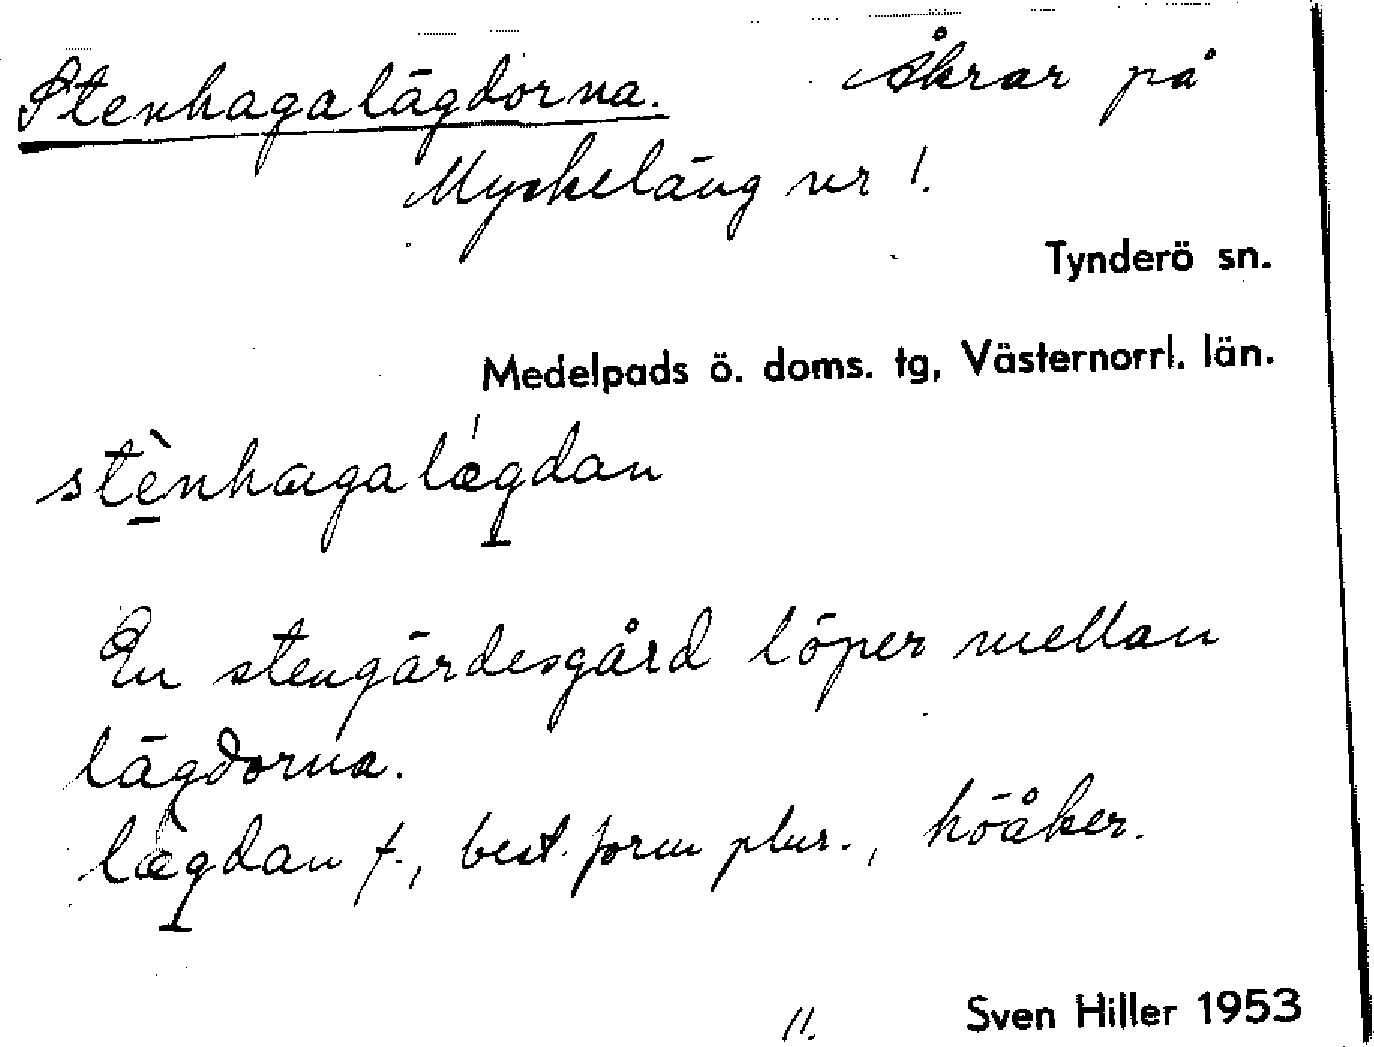 Stenhagalägdorna. Åkrar på
Myckeläng nr 1.
Tynderö sn.
Medelpads ö. doms. tg, Västernorrl. län.
stè̠nhagalǽgdan
En stengärdesgård löper mellan
lägdorna.
lægdan f., best. form plur., höåker.
11. Sven Hiller 1953